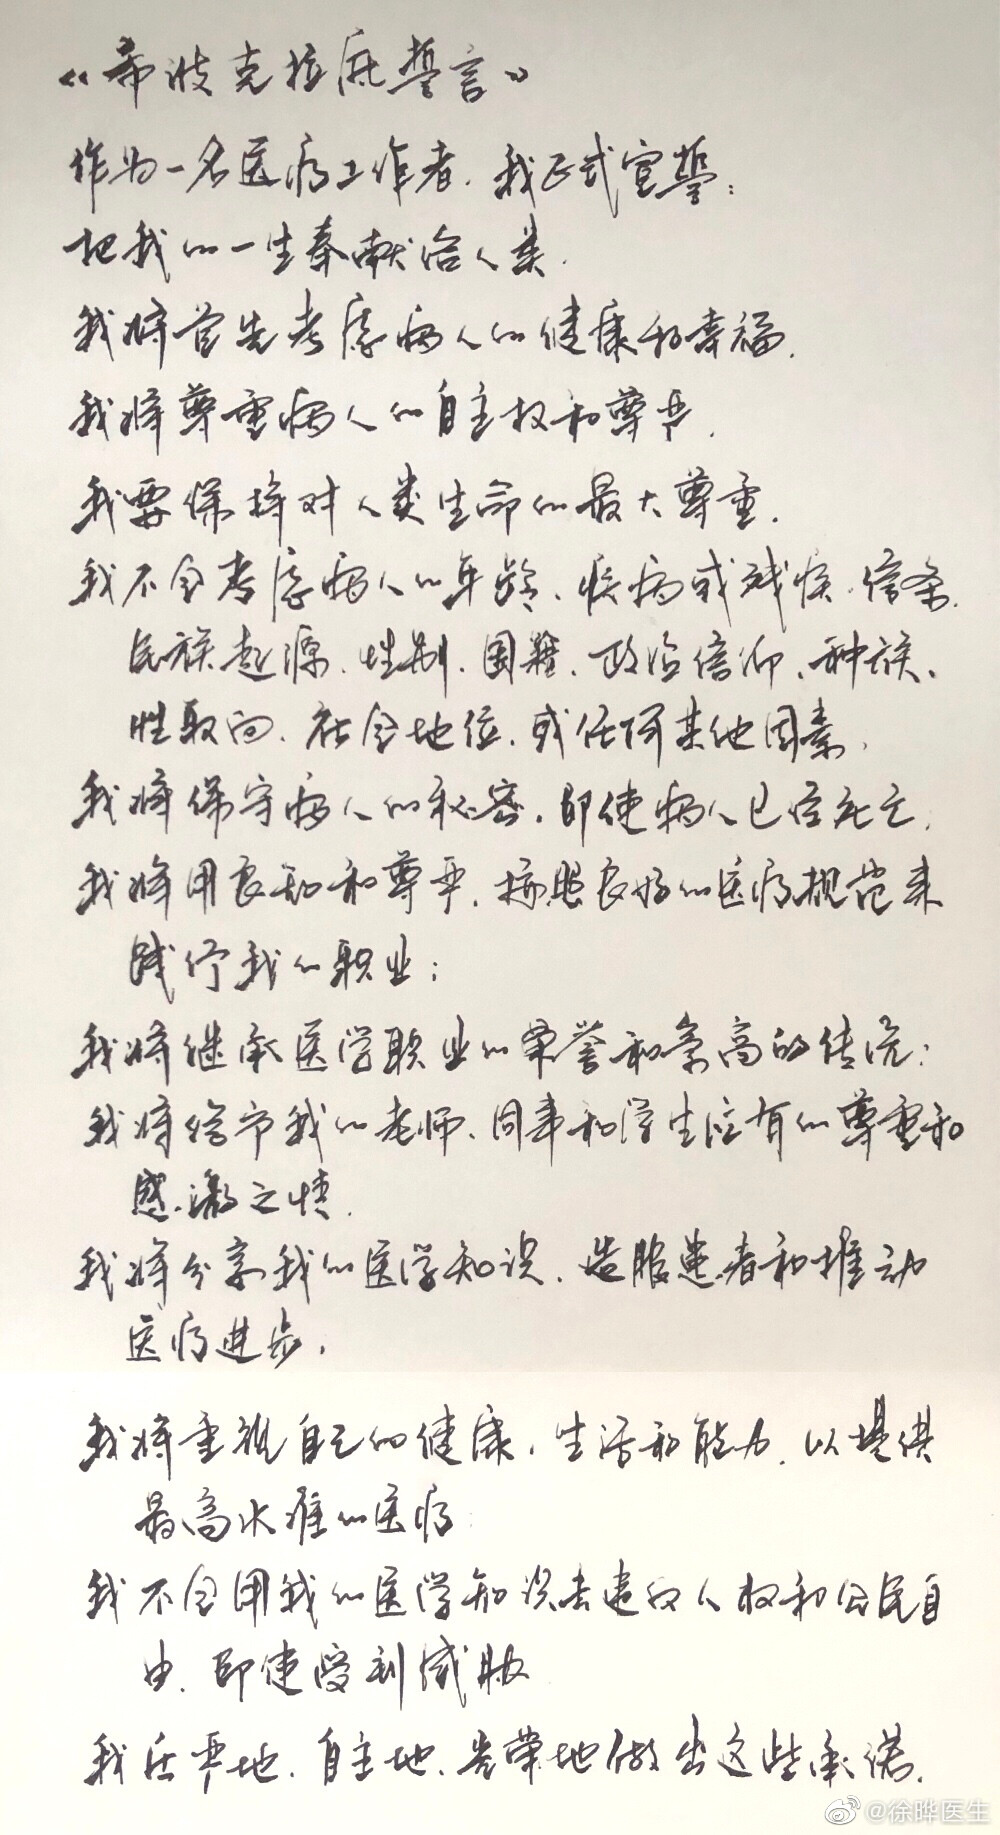 《希波克拉底誓言》
作为一名医疗工作者，我正式宣誓：
把我的一生奉献给人类.
我将首先考虑病人的健康和幸福.
我将尊重病人的自主权和尊严.
我要保持对人类生命的最大尊重.
我不会考虑病人的年龄、疾病或残疾、信条、
民族起源、性别、国籍、政治信仰、种族、
性取向、社会地位、或任何其他因素.
我将保守病人的秘密，即使病人已经死亡.
我将用良知和尊严，按照良好的医疗规范来
践行我的职业；
我将继承医学职业的荣誉和崇高的传统；
我将给予我的老师、同事和学生应有的尊重和
感激之情.
我将分享我的医学知识、造服患者和推动
医疗进步.
我将重视自己的健康，生活和能力，以提供
最高水准的医疗
我不会用我的医学知识去违反人权和公民自
由，即使受到威胁
我庄严地、自主地、光荣地做出这些承诺.
@徐晔医生